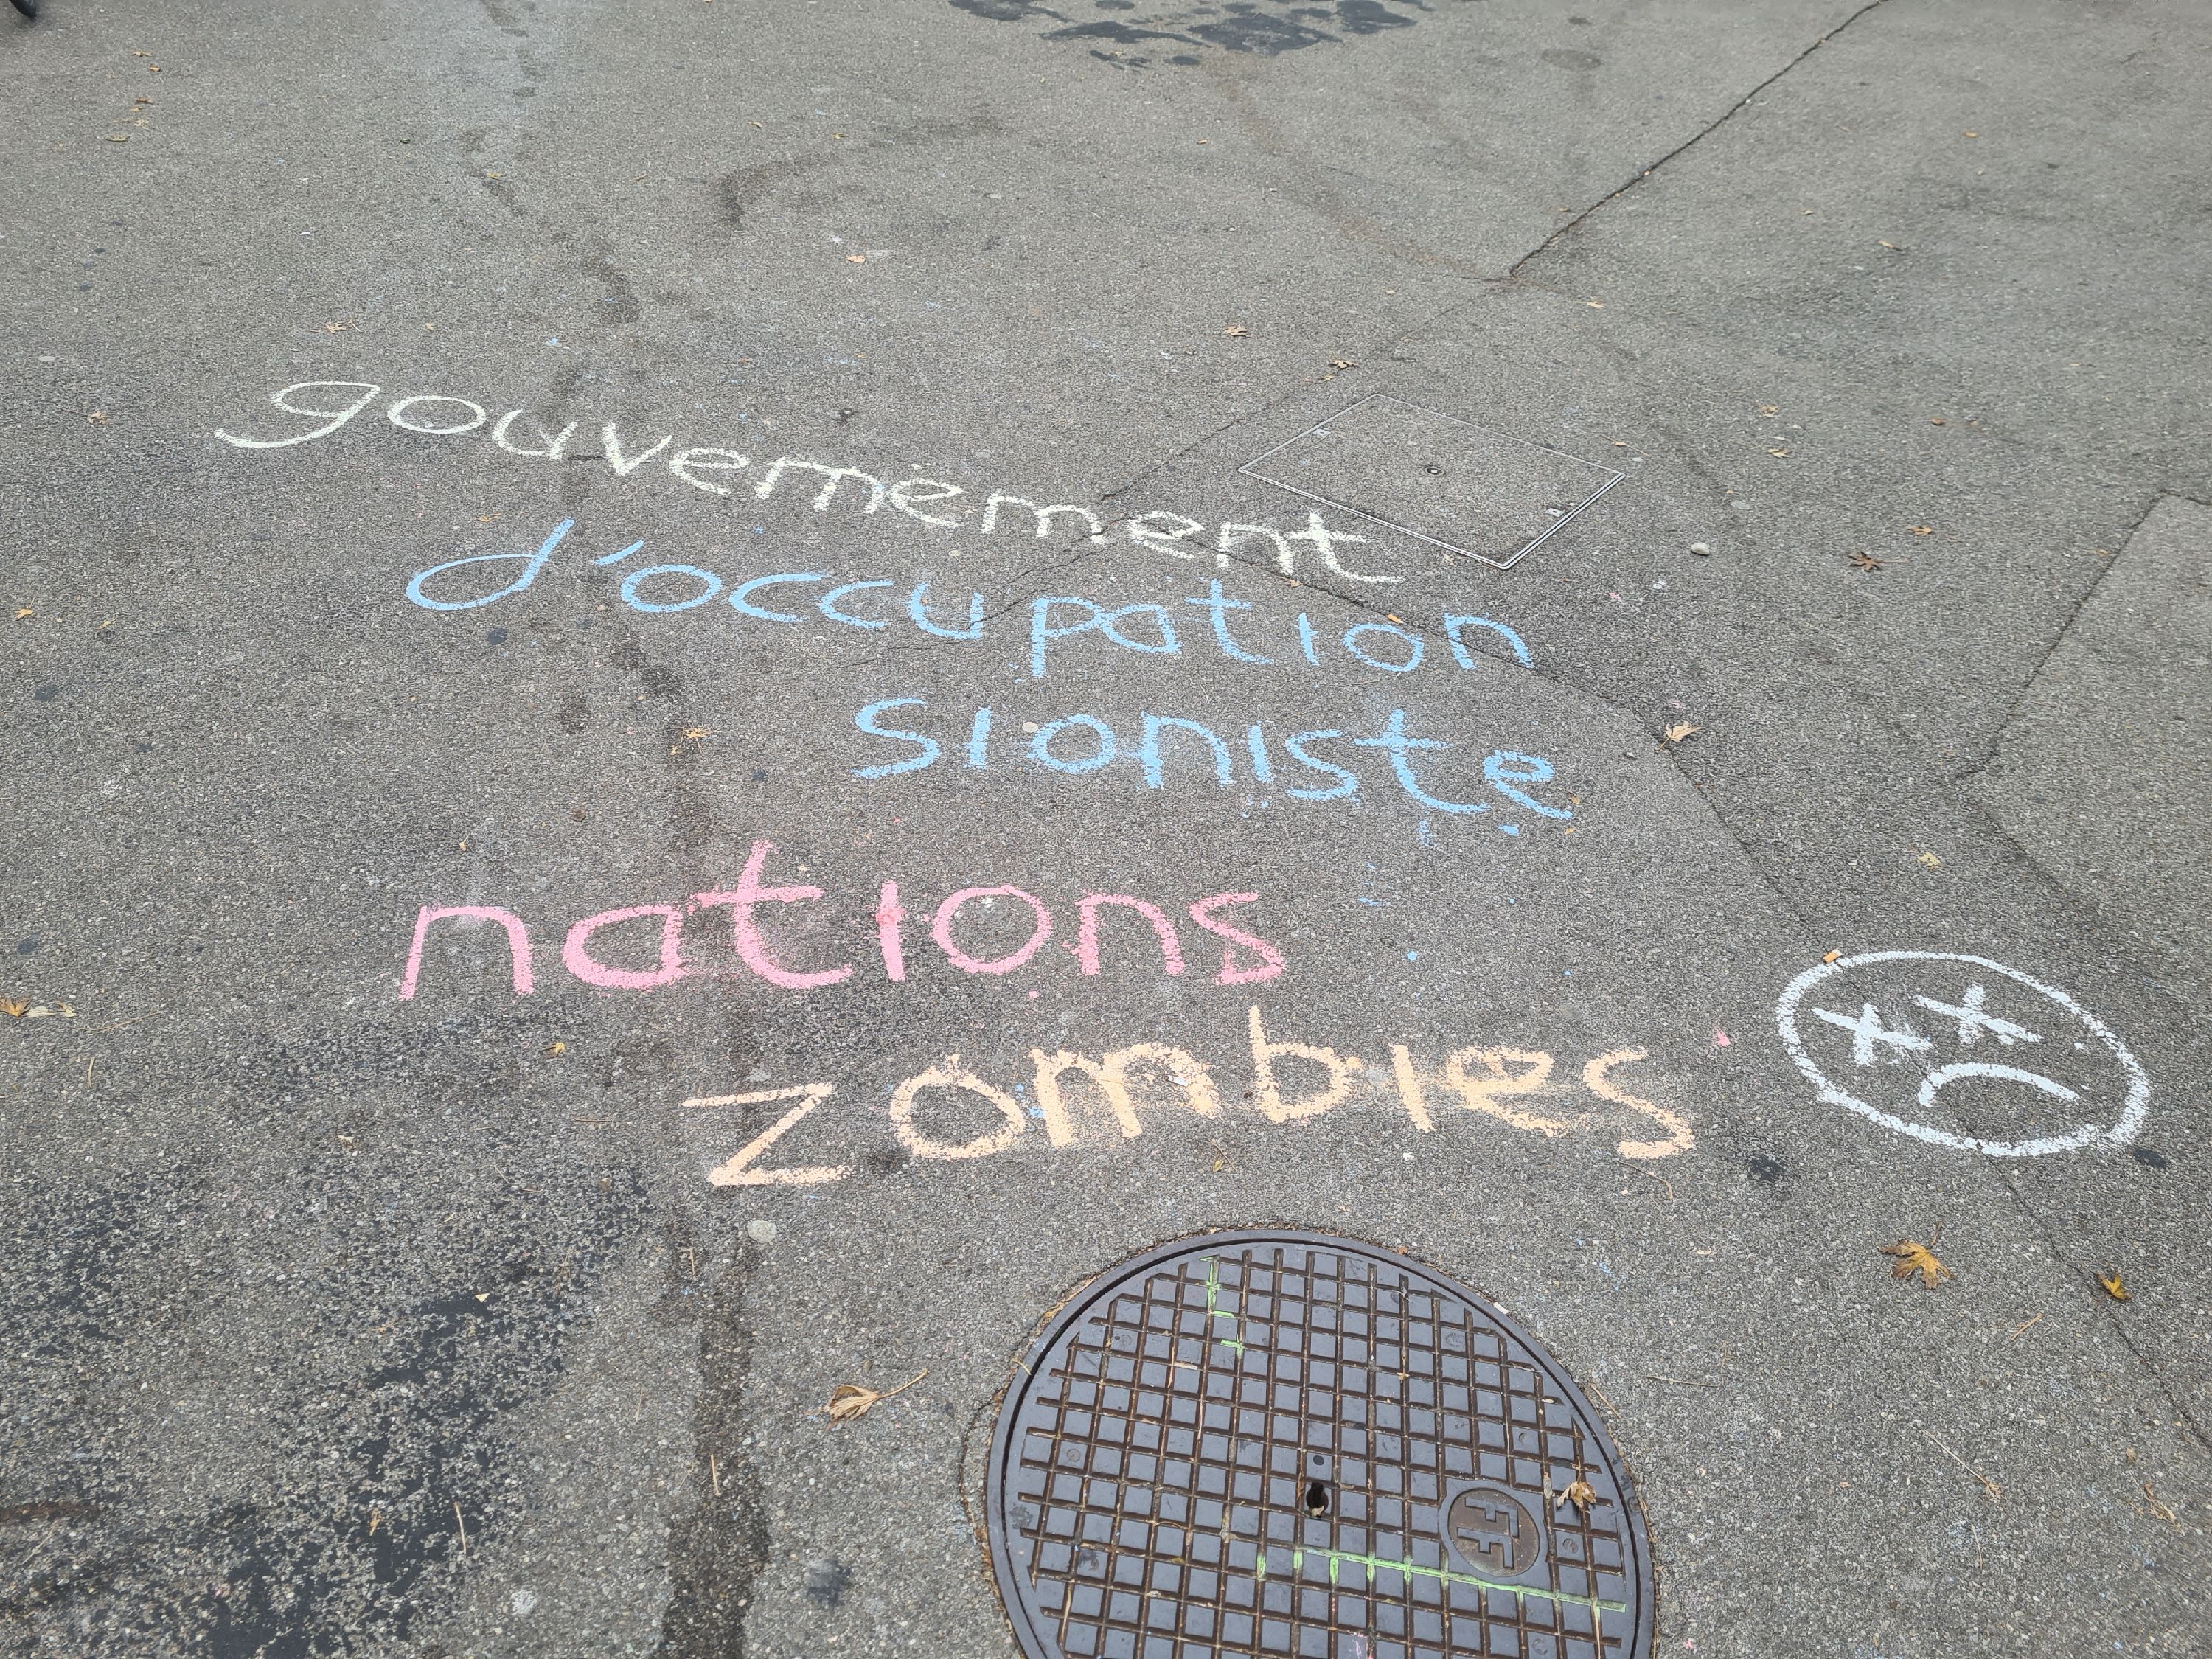 gouvernement
d'occupation
sioniste
nations
zombies